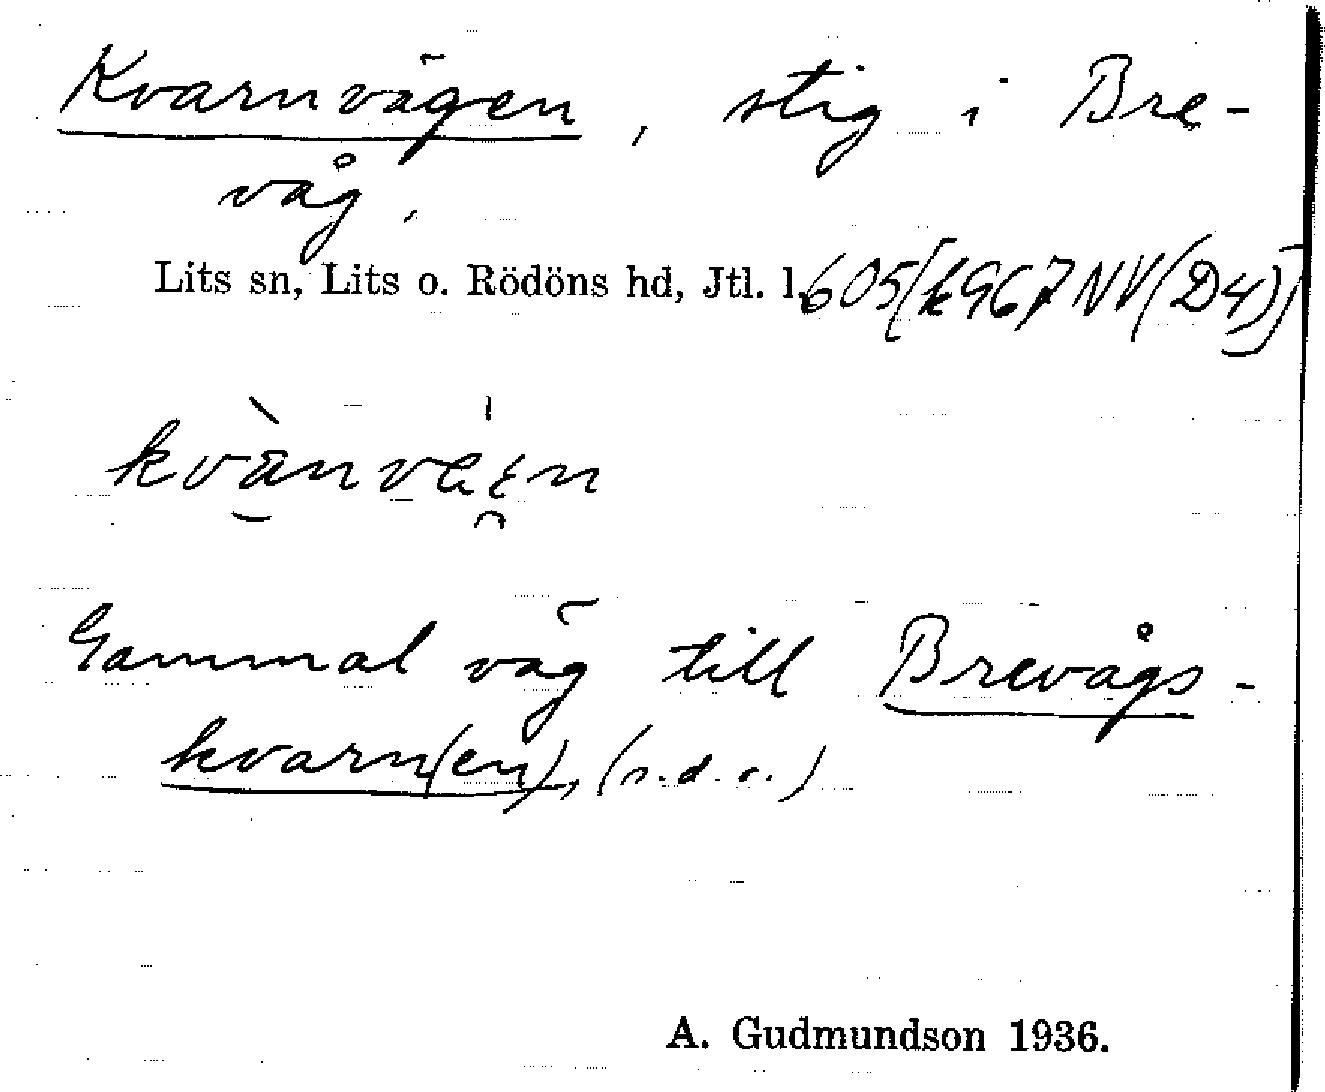 Kvarnvägen, stig i Bre-
våg.
Lits sn, Lits o. Rödöns hd, Jtl. l. 605 [k967NV(D4)]
kvànvæin
Gammal väg till Brevågs-
kvarn(en), (s.d.o.)
A. Gudmundson 1936.